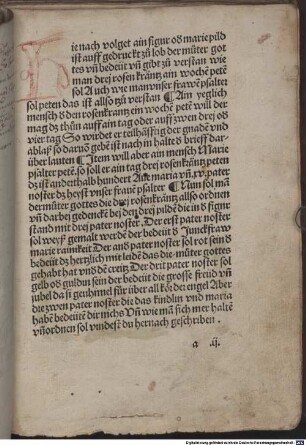 Hie nach volget ain figur oꝛ mariepild
ist auff gedruckt zů lob der můter got
tes vn̄ bedeüt vn̄ gibt zů verstan wie
man drei rosen kräntz ain wochē petē
sol Auch wie man vnser frawē psalter
sol peten das ist allso zů verstan Ain yeglich
mensch ď den rosenkrantz ein wochē petē will der
mag dz thůn auff ain tag oder auff zwen drei oď
vier tag So wirdet er teilhäftig der gnadē vnd
ablaß so darzů gebē ist nach in halts ď brieff dar
über lauten Item will aber ain mensch Marie
psalter petē. so soll er ain tag drei rosenkräntz peten
dz ist anderthalb hundert Aue maria vn̄. xv. pater
noster dz heyst vnser frauē psalter Nun sol mā
der můter gottes die drei rosenkräntz allso ordnen
vn̄ darbei gedenckē bei den drej pildē die in ď figur
stand mit drei pater noster. Der erst pater noster
sol weyß gemalt werdē der bedeüt ď Junckfraw
marie rainikeit Der and pater noster sol rot sein ď
bedeüt dz hertzlich mit leidē das die můter gottes
gehabt hat vnďdē creütz Der drit pater noster sol
gelb oď guldin sein der bedeüt die grosse freud vn̄
jubel da ji gen himmel für über all köꝛ der engel Aber
die zwen pater noster die das kindlin vnd maria
habē bedeütē dir nichs Vn̄ wie mā sich mer haltē
vn̄ ordnen sol vindest du hernach geschriben.
a ij.